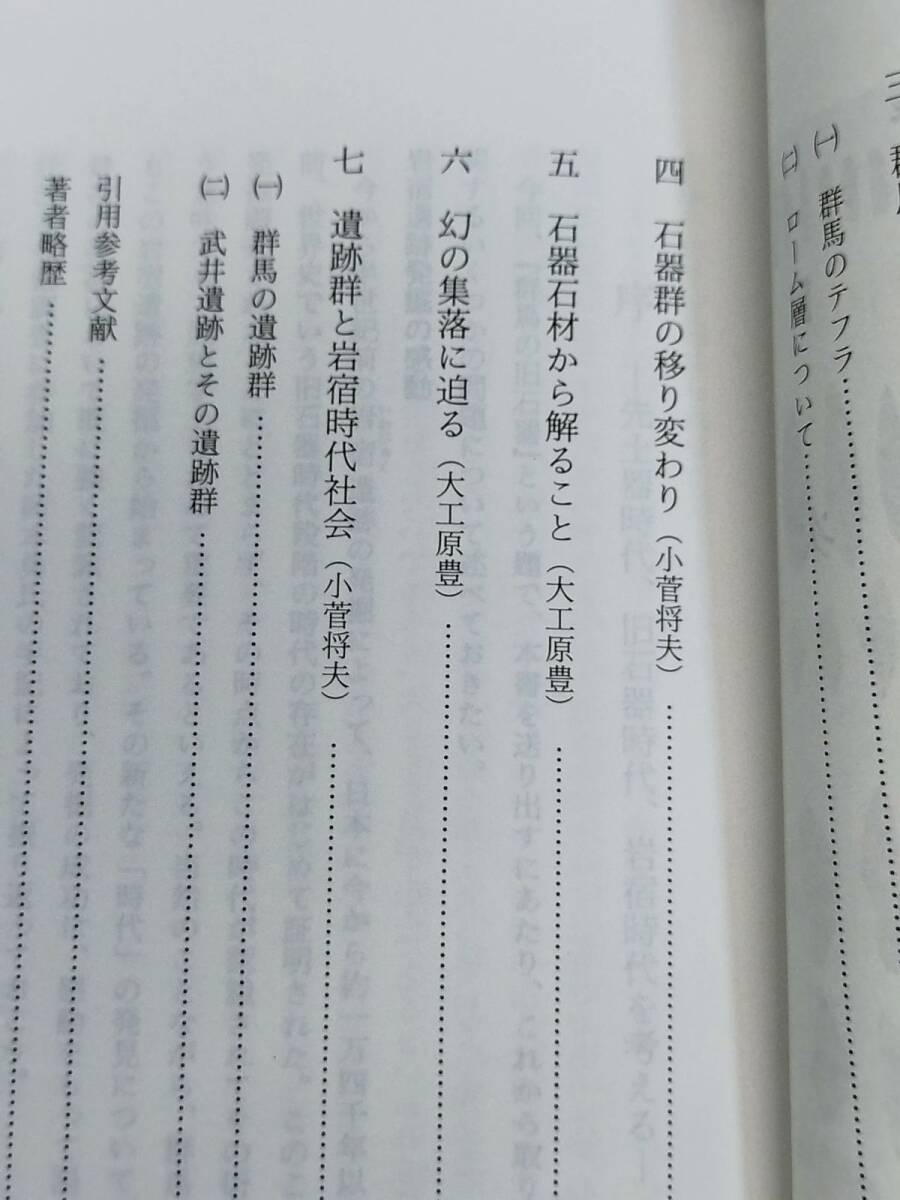 三
㈠ 群馬のテフラ……………………
㈡ ローム層について……………………
四 石器群の移り変わり（小菅将夫）……………………
五 石器石材から解ること（大工原豊）……………………
六 幻の集落に迫る（大工原豊）……………………
七 遺跡群と岩宿時代社会（小菅将夫）……………………
㈠ 群馬の遺跡群……………………
㈡ 武井遺跡とその遺跡群……………………
引用参考文献……………………
著者略歴……………………